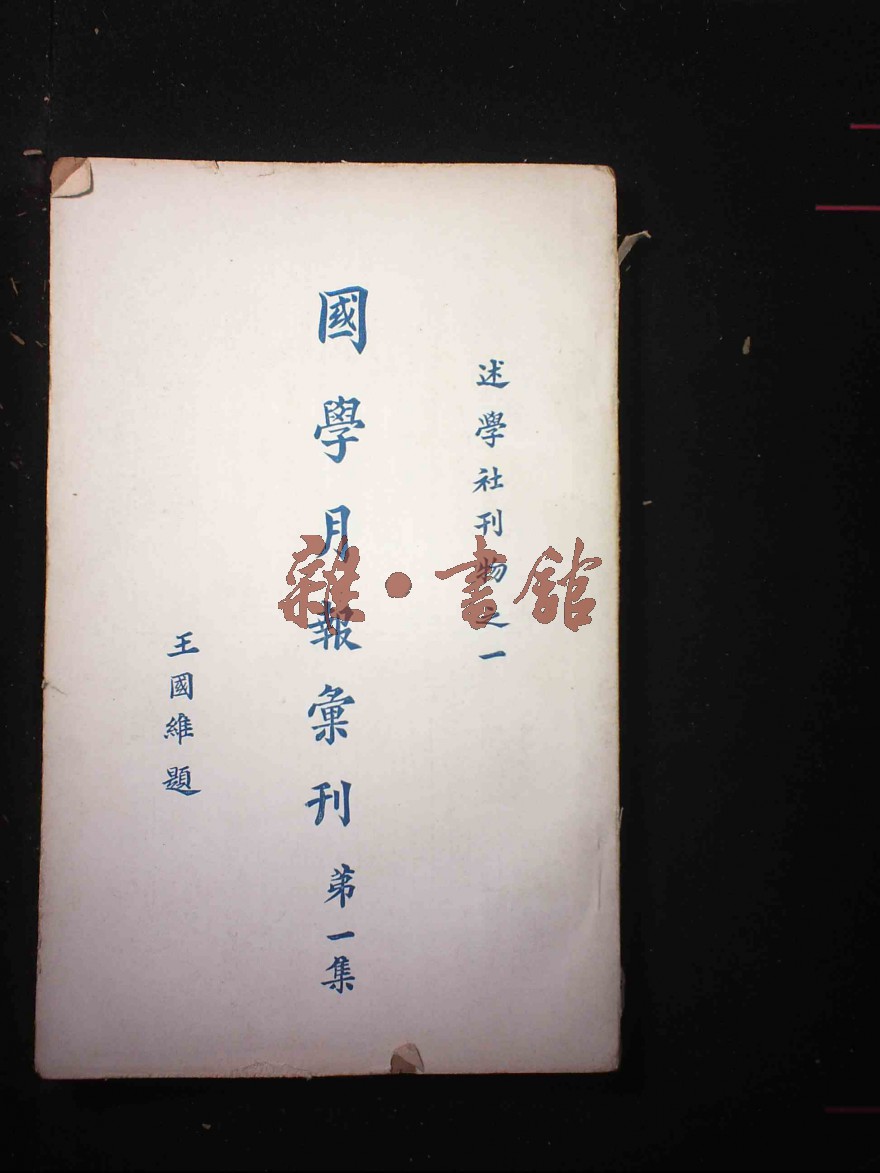 述學社刊物之一
國學月報彙刊 第一集
王國維題
雜·書館